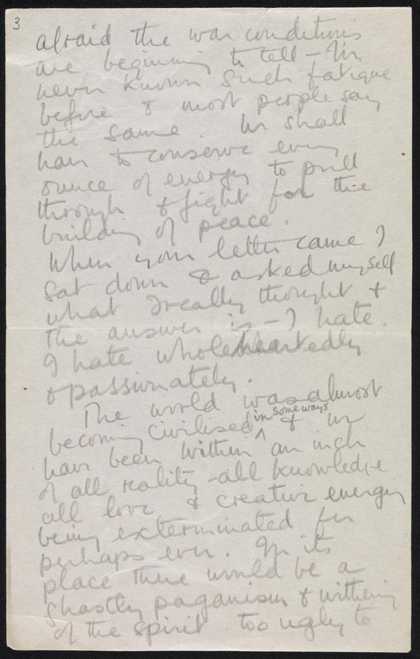 3
afraid the war conditions
are beginning to tell – I've
never known such fatigue
before & most people say
the same. We shall
have to conserve every
ounce of energy to pull
through & fight for the
building of peace.
When your letter came I
sat down & asked myself
what I really thought &
the answer is – I hate.
I hate wholeheartedly
& passionately.
The world was almost
becoming civilised in some ways & we
have been within an inch
of all reality – all knowledge
all love & creative energy
being exterminated for
perhaps ever. In its
place there would be a
ghastly paganism & withering
of the spirit too ugly to